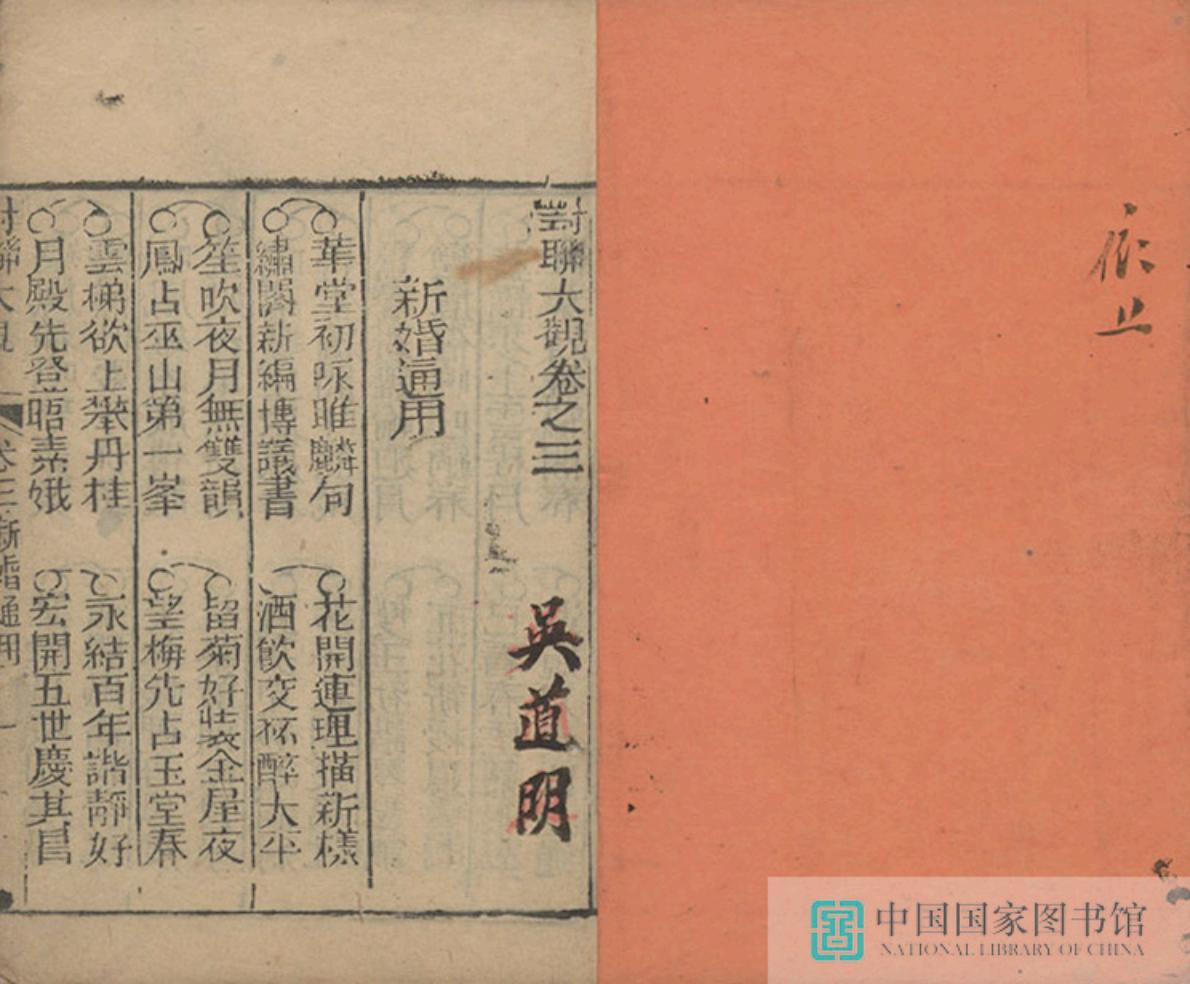 對聯大觀卷之三
吳道明
新婚通用
華堂初咏雎麟句
繡閣新編博議書
花開連理描新樣
酒飲交杯醉太平
笙吹夜月無雙韻
鳳占巫山第一峯
留菊好裝金屋夜
望梅先占玉堂春
雲梯欲上攀丹桂
月殿先登晤素娥
永結百年諧靜好
宏開五世慶其昌
對聯大觀
卷三新婚通用
一
中国国家图书馆
NATIONAL LIBRARY OF CHINA